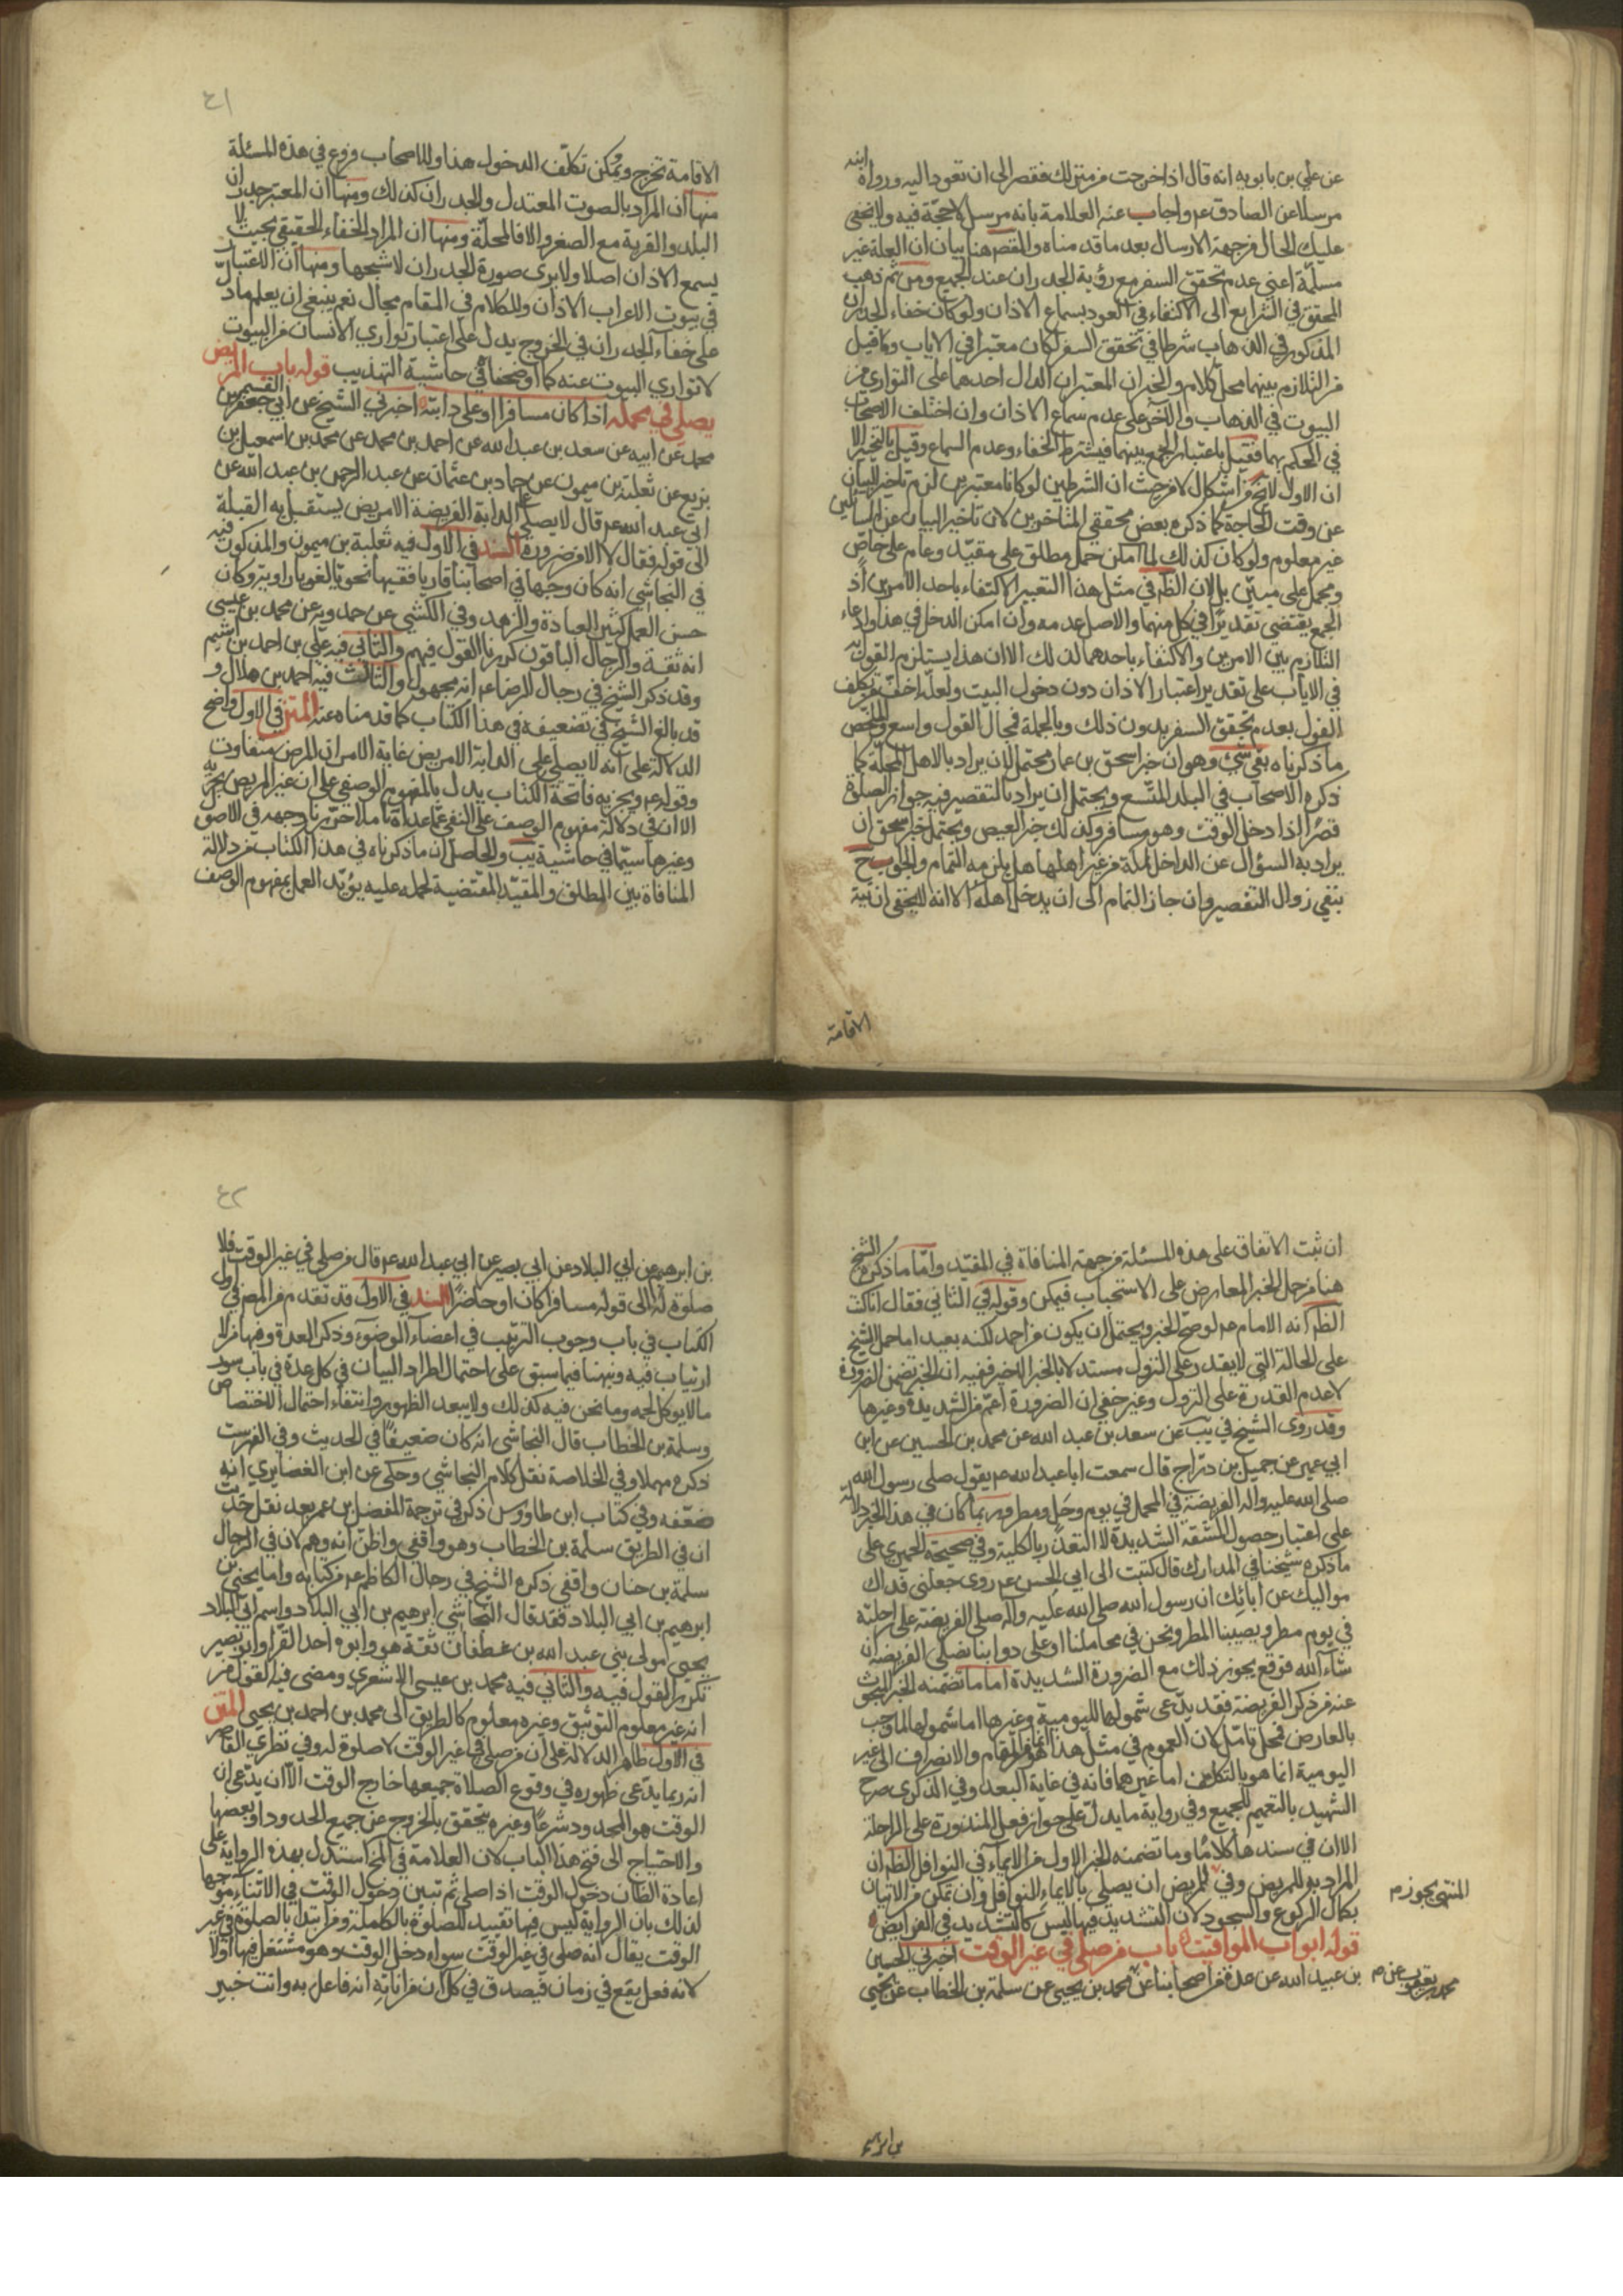 عن علي بن بابويه انه قال اذا خرجت من منزلك فقصر الى ان تعود اليه ورواه ابنه
مرسلا عن الصادق ع م واجاب عنه العلامة بانه مرسل لا حجة فيه ولا يخفى
عليك الحال من جهة الارسال بعد ما قدمناه والمقصم هنا بيان ان العلة غير
مسلمة اعني عدم تحقق السفر مع رؤية الجدران عند الجميع ومن ثم ذهب
المحقق في الشرايع الى الاكتفاء في العود بسماع الاذان ولو كان خفاء الجدران
المذكور في الذهاب شرطا في تحقق السفر لكان معتبرا في الاياب وما قيل
من التلازم بينهما محل كلام والخبران المعتبران الدال احدهما على التواري من
البيوت في الذهاب والآخر على عدم سماع الاذان وان اختلف الاصحاب
في الحكم بهما فقيل باعتبار الجمع بينهما فيشترط الخفاء وعدم السماع وقيل بالتخيير الا
ان الاول لا يخ من اشكال لا من حيث ان الشرطين لو كانا معتبرين لزم تاخير البيان
عن وقت الحاجة كما ذكره بعض محققي المتاخرين لان تاخير البيان عن السائلين
غير معلوم ولو كان كذلك لما امكن حمل مطلق على مقيد وعام على خاص
ومجمل على مبين بل لان الظم في مثل هذا التعبير الاكتفاء باحد الامرين اذ
الجمع يقتضي تقديرا في كل منهما والاصل عدمه وان امكن الدخل في هذا وادعاء
التلازم بين الامرين والاكتفاء باحدهما لذلك الا ان هذا يستلزم القول به
في الاياب على تقدير اعتبار الاذان دون دخول البيت ولعله اخف من تكلف
القول بعدم تحقق السفر بدون ذلك وبالجملة فمجال القول واسع وملخص
ما ذكرناه بقي شيء وهو ان خبر اسحق بن عمار محتمل لان يراد بالاهل المحلة كما
ذكره الاصحاب في البلد المتسع ويحتمل ان يراد بالتقصير فيه جواز الصلوة
قصرا اذا دخل الوقت وهو مسافر وكذلك خبر العيص ويحتمل خبر اسحق ان
يراد به السؤال عن الداخل لمكة من غير اهلها هل يلزمه التمام والجواب ح
بنفي زوال التقصير وان جاز التمام الى ان يدخل اهله الا انه لا يخفى ان نية
الاقامة
٤١
الاقامة تخرج ويمكن تكلف الدخول هذا وللاصحاب فروع في هذه المسئلة
منها ان المراد بالصوت المعتدل والجدران كذلك ومنها ان المعتبر جدران
البلد والقرية مع الصغر والا فالمحلة ومنها ان المراد الخفاء الحقيقي بحيث لا
يسمع الاذان اصلا ولا يرى صورة الجدران لا شبحها ومنها ان الاعتبار
في بيوت الاعراب الاذان وللكلام في المقام مجال نعم ينبغي ان يعلم ما دل
على خفاء الجدران في الخروج يدل على اعتبار تواري الانسان من البيوت
لا تواري البيوت عنه كما اوضحناه في حاشية التهذيب قوله باب المريض
يصلي في محمله اذا كان مسافرا او على دابته اخبرني الشيخ عن ابي القسم جعفر بن
محمد عن ابيه عن سعد بن عبد الله عن احمد بن محمد عن محمد بن اسمعيل بن
بزيع عن ثعلبة بن ميمون عن حماد بن عثمان عن عبد الرحمن بن عبد الله عن
ابي عبد الله ع م قال لا يصلي على الدابة الفريضة الا مريض يستقبل به القبلة
الى قوله فقال لا الا من ضرورة السند في الاول فيه ثعلبة بن ميمون والمذكور فيه
في النجاشي انه كان وجها في اصحابنا قاريا فقيها نحويا لغويا راوية وكان
حسن العمل كثير العبادة والزهد وفي الكشي عن حمدويه عن محمد بن عيسى
انه ثقة والرجال الباقون كررنا القول فيهم والثاني فيه علي بن احمد بن اشيم
وقد ذكر الشيخ في رجال الرضا ع م انه مجهول والثالث فيه احمد بن هلال و
قد بالغ الشيخ في تضعيفه في هذا الكتاب كما قدمناه عنه المتن في الاول واضح
الدلالة على انه لا يصلي على الدابة الا مريض غاية الامر ان المرض متفاوت
وقوله ع م ويجزيه فاتحة الكتاب يدل بالمفهوم الوصفي على ان غير المريض لا يجزيه
الا ان في دلالة مفهوم الوصف على النفي عما عداه تاملا حررنا وجهه في الاصول
وغيرها سيما في حاشية يب والحاصل ان ما ذكرناه في هذا الكتاب من دلالة
المنافاة بين المطلق والمقيد المقتضية لحمله عليه يؤيد العمل بمفهوم الوصف
ان ثبت الاتفاق على هذه المسئلة من جهة المنافاة في المقيد واما ما ذكره الشيخ
هنا من حمل الخبر المعارض على الاستحباب فيمكن وقوله في الثاني فقال انا كنت
الظم انه الامام ع م لو صح الخبر ويحتمل ان يكون من احمد لكنه بعيد اما حمل الشيخ
على الحالة التي لا يقدر على النزول مستدلا بالخبر الاخير ففيه ان الخبر تضمن الضرورة
لا عدم القدرة على النزول وغير خفي ان الضرورة اعم من الشديدة وغيرها
وقد روى الشيخ في يب عن سعد بن عبد الله عن محمد بن الحسين عن ابن
ابي عمير عن جميل بن دراج قال سمعت ابا عبد الله ع م يقول صلى رسول الله
صلى الله عليه واله الفريضة في المحمل في يوم وحل ومطر وربما كان في هذا الخبر دلالة
على اعتبار حصول المشقة الشديدة لا التعذر بالكلية وفي صحيحة الحميري على
ما ذكره شيخنا في المدارك قال كتبت الى ابي الحسن ع م روى جعلني فداك
مواليك عن آبائك ان رسول الله صلى الله عليه واله صلى الفريضة على راحلته
في يوم مطر ويصيبنا المطر ونحن في محاملنا او على دوابنا نصلي الفريضة ان
شاء الله فوقع يجوز ذلك مع الضرورة الشديدة اما ما تضمنه الخبر المبحوث
عنه من ذكر الفريضة فقد يدعى شمولها لليومية وغيرها اما شمولها لما وجب
بالعارض فمحل تامل لان العموم في مثل هذا انما هو من المقام والانصراف الى غير
اليومية انما هو بالتكلف اما غيرهما فانه في غاية البعد وفي الذكرى صرح
الشهيد بالتعميم للجميع وفي رواية ما يدل على جواز فعل المنذورة على الراحلة
الا ان في سندها كلاما وما تضمنه الخبر الاول من الايماء في النوافل الظم ان
المراد به للمريض وفي للمريض ان يصلي بالايماء للنوافل وان تمكن من الاتيان
المنتهى يجوز م
بكمال الركوع والسجود لان التشديد فيها ليس كالتشديد في الفرايض
قوله ابواب المواقيت باب من صلى في غير الوقت اخبرني الحسين
بن عبيد الله عن عدة من اصحابنا عن محمد بن يحيى عن سلمة بن الخطاب عن يحيى
محمد بن يعقوب عن م
بن ابرهيم
٤٢
بن ابرهيم عن ابي البلاد عن ابي بصير عن ابي عبد الله ع م قال من صلى في غير الوقت فلا
صلوة له الى قوله مسافرا كان او حاضرا السند في الاول قد تقدم من المصم في اول
الكتاب في باب وجوب الترتيب في اعضاء الوضوء وذكر العدة وفيها من لا
ارتياب فيه ونبهنا فيما سبق على احتمال اطراد البيان في كل عدة في باب سور
ما لا يوكل لحمه وما نحن فيه كذلك ولا يبعد الظهور وانتفاء احتمال الاختصاص
وسلمة بن الخطاب قال النجاشي انه كان ضعيفا في الحديث وفي الفهرست
ذكره مهملا وفي الخلاصة نقل كلام النجاشي وحكى عن ابن الغضايري انه
ضعفه وفي كتاب ابن طاووس ذكر في ترجمة المفضل بن عمر بعد نقل حديث
ان في الطريق سلمة بن الخطاب وهو واقفي واظن انه وهم لان في الرجال
سلمة بن حنان واقفي ذكره الشيخ في رجال الكاظم ع م من كتابه واما يحيى بن
ابرهيم بن ابي البلاد فقد قال النجاشي ابرهيم بن ابي البلاد واسم ابي البلاد
يحيى مولى بني عبد الله بن غطفان ثقة هو وابوه احد القراء وابو بصير
تكرر القول فيه والثاني فيه محمد بن عيسى الاشعري ومضى فيه القول من
انه غير معلوم التوثيق وغيره معلوم كالطريق الى محمد بن احمد بن يحيى المتن
في الاول ظاهر الدلالة على ان من صلى في غير الوقت لا صلوة له وفي نظري القاصر
انه ربما يدعى ظهوره في وقوع الصلاة جميعها خارج الوقت الا ان يدعى ان
الوقت هو المحدود شرعا وغيره يتحقق بالخروج عن جميع الحدود او بعضها
والاحتياج الى فتح هذا الباب لان العلامة في المخ استدل بهذه الرواية على
اعادة الظان دخول الوقت اذا صلى ثم تبين دخول الوقت في الاثناء موجها
لذلك بان الرواية ليس فيها تقييد للصلوة بالكاملة ومن ابتدأ بالصلوة في غير
الوقت يقال انه صلى في غير الوقت سواء دخل الوقت وهو مشتغل فيها او لا
لانه فعل يقع في زمان فيصدق في كل آن من آناته انه فاعل به وانت خبير